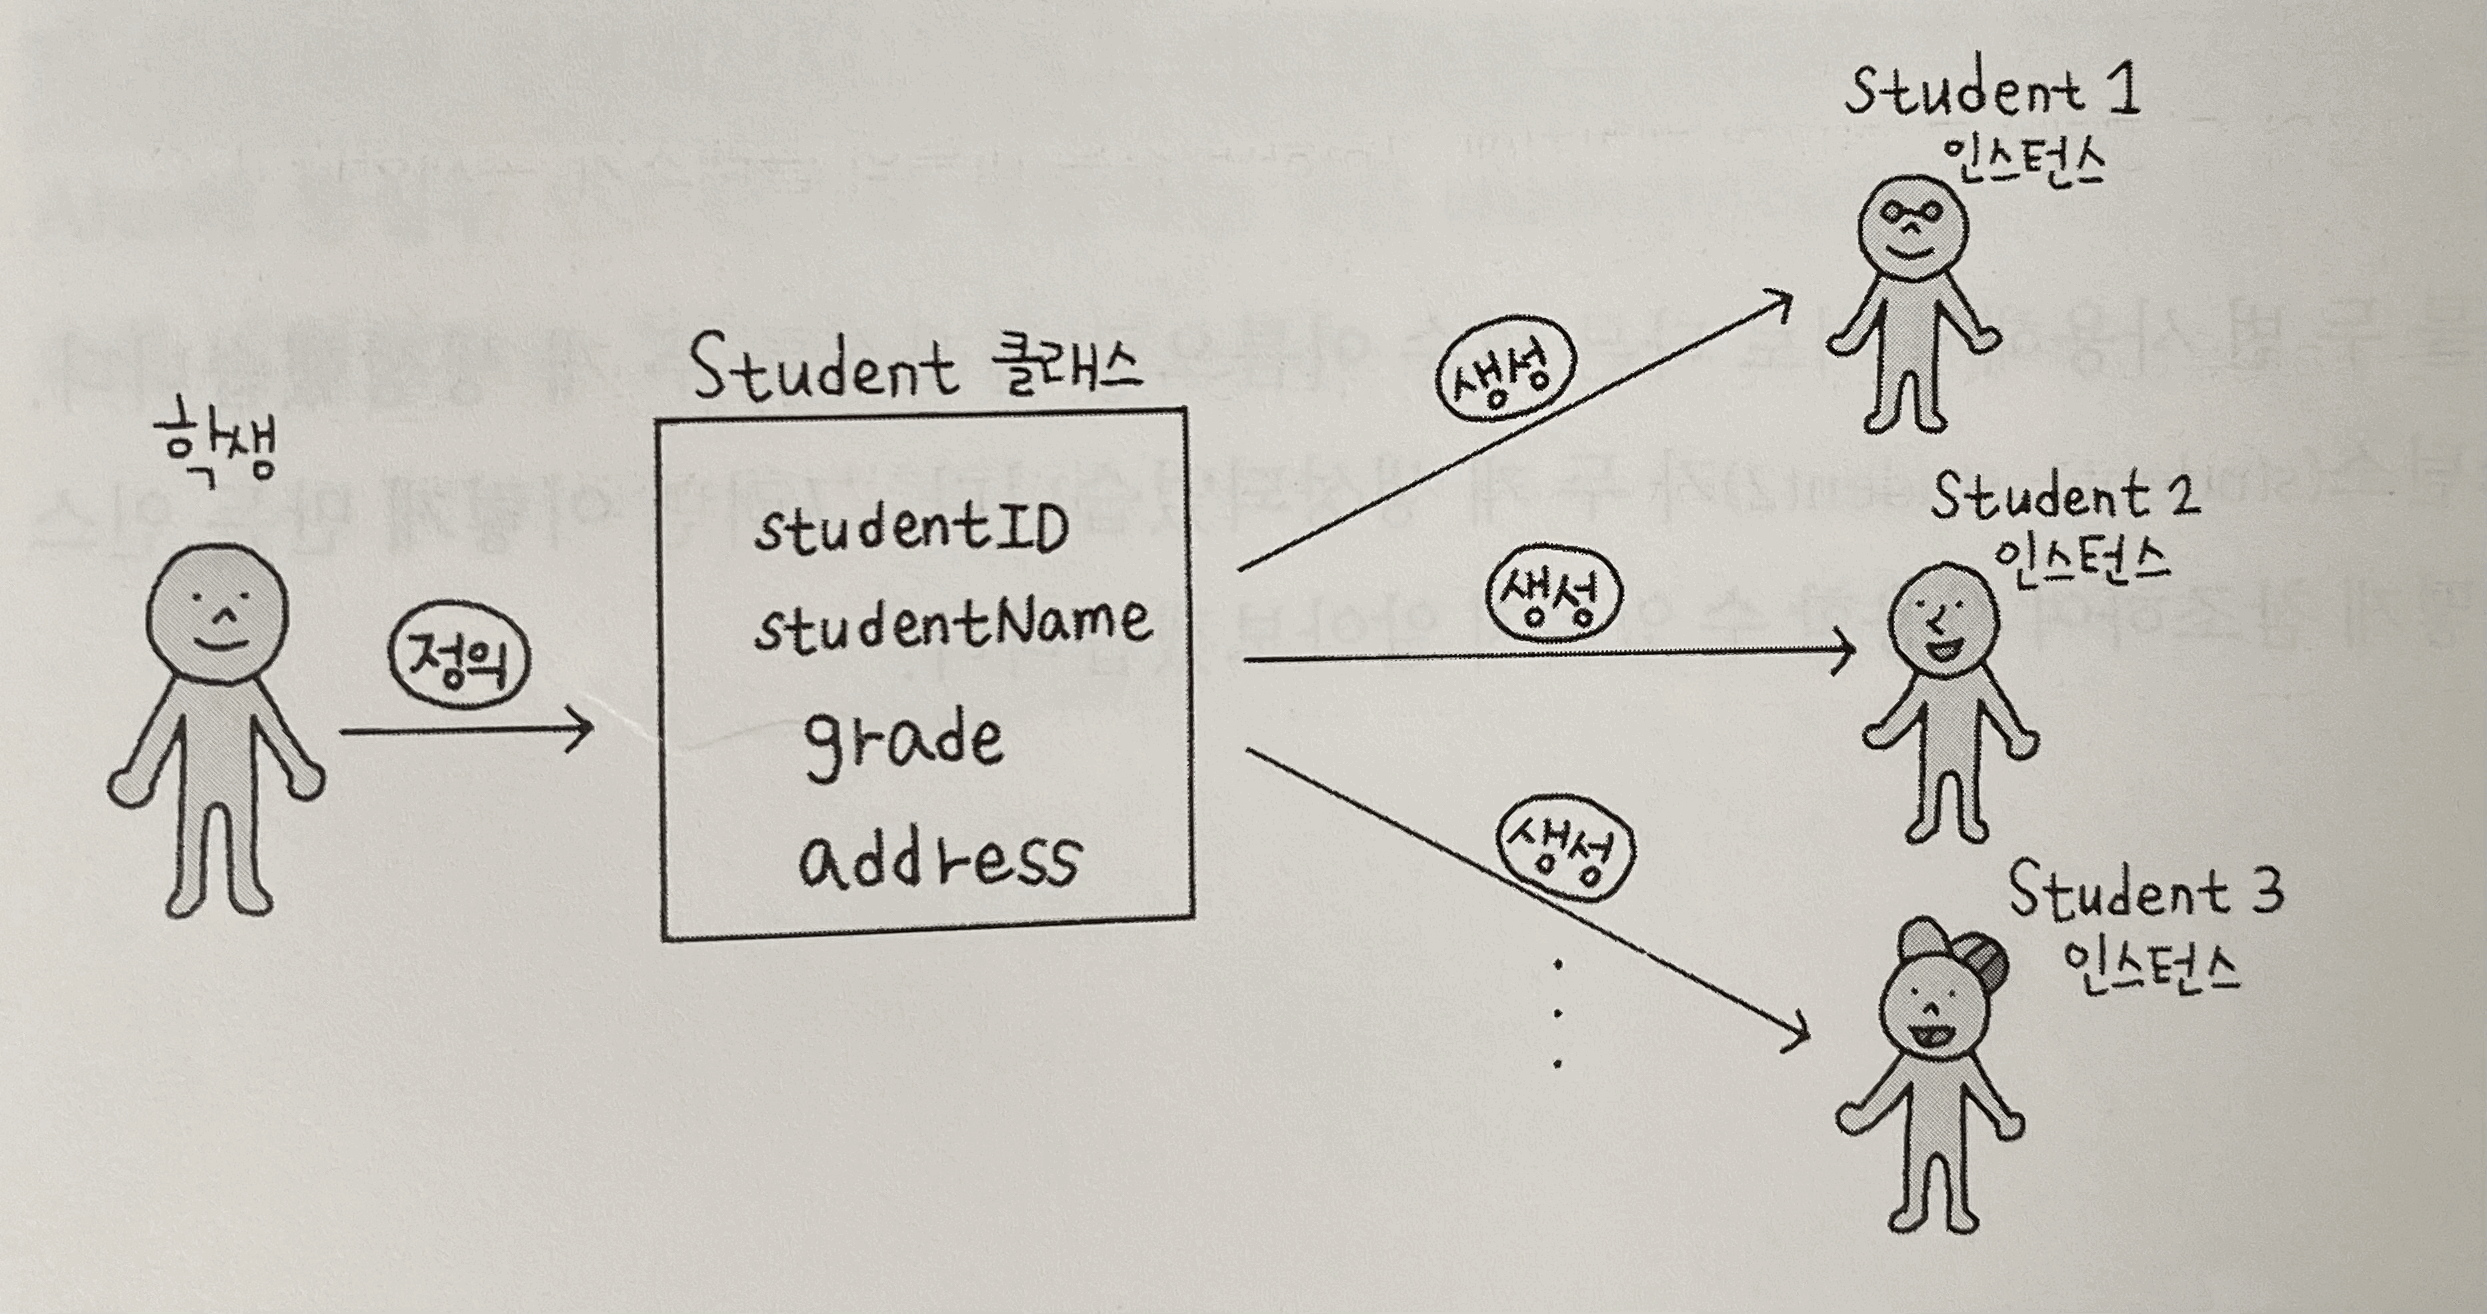 학생
정의
Student 클래스
studentID
studentName
grade
address
생성
Student 1
인스턴스
생성
Student 2
인스턴스
생성
Student 3
인스턴스